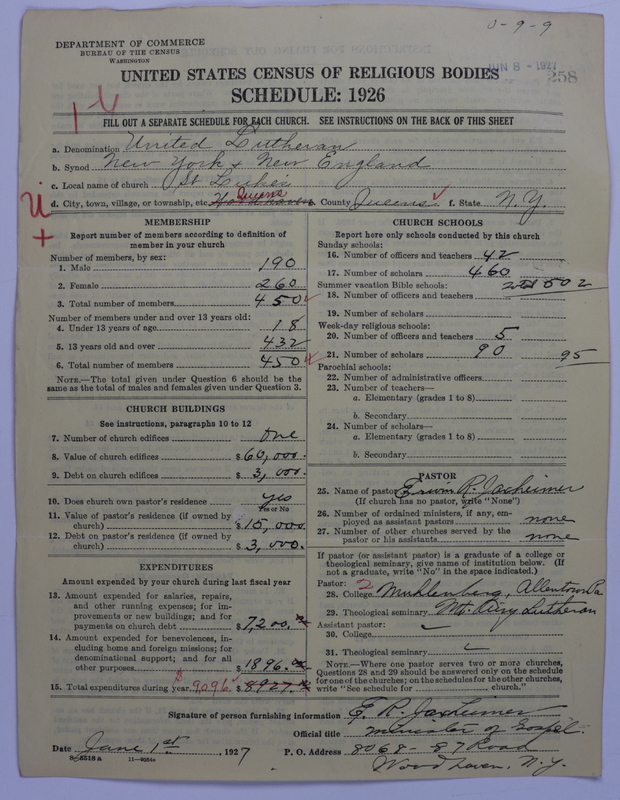 0-9-9
DEPARTMENT OF COMMERCE
BUREAU OF THE CENSUS
WASHINGTON
JUN 8 - 1927
258
UNITED STATES CENSUS OF RELIGIOUS BODIES
SCHEDULE: 1926
FILL OUT A SEPARATE SCHEDULE FOR EACH CHURCH. SEE INSTRUCTIONS ON THE BACK OF THIS SHEET
a. Denomination United Lutheran
b. Synod New York & New England
c. Local name of church St Luke's
d. City, town, village, or township, etc. Woodhaven Queens County Queens f. State N.Y.
MEMBERSHIP
Report number of members according to definition of member in your church
Number of members, by sex:
1. Male 190
2. Female 260
3. Total number of members 450
Number of members under and over 13 years old:
4. Under 13 years of age 18
5. 13 years old and over 432
6. Total number of members 450
NOTE.—The total given under Question 6 should be the same as the total of males and females given under Question 3.
CHURCH BUILDINGS
See instructions, paragraphs 10 to 12
7. Number of church edifices One
8. Value of church edifices $60,000.
9. Debt on church edifices $3,000.
10. Does church own pastor's residence yes
Yes or No
11. Value of pastor's residence (if owned by church) $15,000.
12. Debt on pastor's residence (if owned by church) $3,000.
EXPENDITURES
Amount expended by your church during last fiscal year
13. Amount expended for salaries, repairs, and other running expenses; for improvements or new buildings; and for payments on church debt $7,200.
14. Amount expended for benevolences, including home and foreign missions; for denominational support; and for all other purposes $1896.
15. Total expenditures during year 9096 $8927.
CHURCH SCHOOLS
Report here only schools conducted by this church
Sunday schools:
16. Number of officers and teachers 42
17. Number of scholars 460
Summer vacation Bible schools: total 502
18. Number of officers and teachers
19. Number of scholars
Week-day religious schools:
20. Number of officers and teachers 5
21. Number of scholars 90 95
Parochial schools:
22. Number of administrative officers
23. Number of teachers—
a. Elementary (grades 1 to 8)
b. Secondary
24. Number of scholars—
a. Elementary (grades 1 to 8)
b. Secondary
PASTOR
25. Name of pastor Erwin R. Jaxheimer
(If church has no pastor, write "None")
26. Number of ordained ministers, if any, employed as assistant pastors none
27. Number of other churches served by the pastor or his assistants none
If pastor (or assistant pastor) is a graduate of a college or theological seminary, give name of institution below. (If not a graduate, write "No" in the space indicated.)
Pastor: 2
28. College Muhlenberg, Allentown Pa
29. Theological seminary Mt. Airy Lutheran
Assistant pastor:
30. College
31. Theological seminary
NOTE.—Where one pastor serves two or more churches, Questions 28 and 29 should be answered only on the schedule for one of the churches; on the schedules for the other churches, write "See schedule for church."
Signature of person furnishing information E. R. Jaxheimer
Official title Minister of Gospel.
Date June 1st, 1927 P. O. Address 8068 - 87 Road
Woodhaven, N.Y.